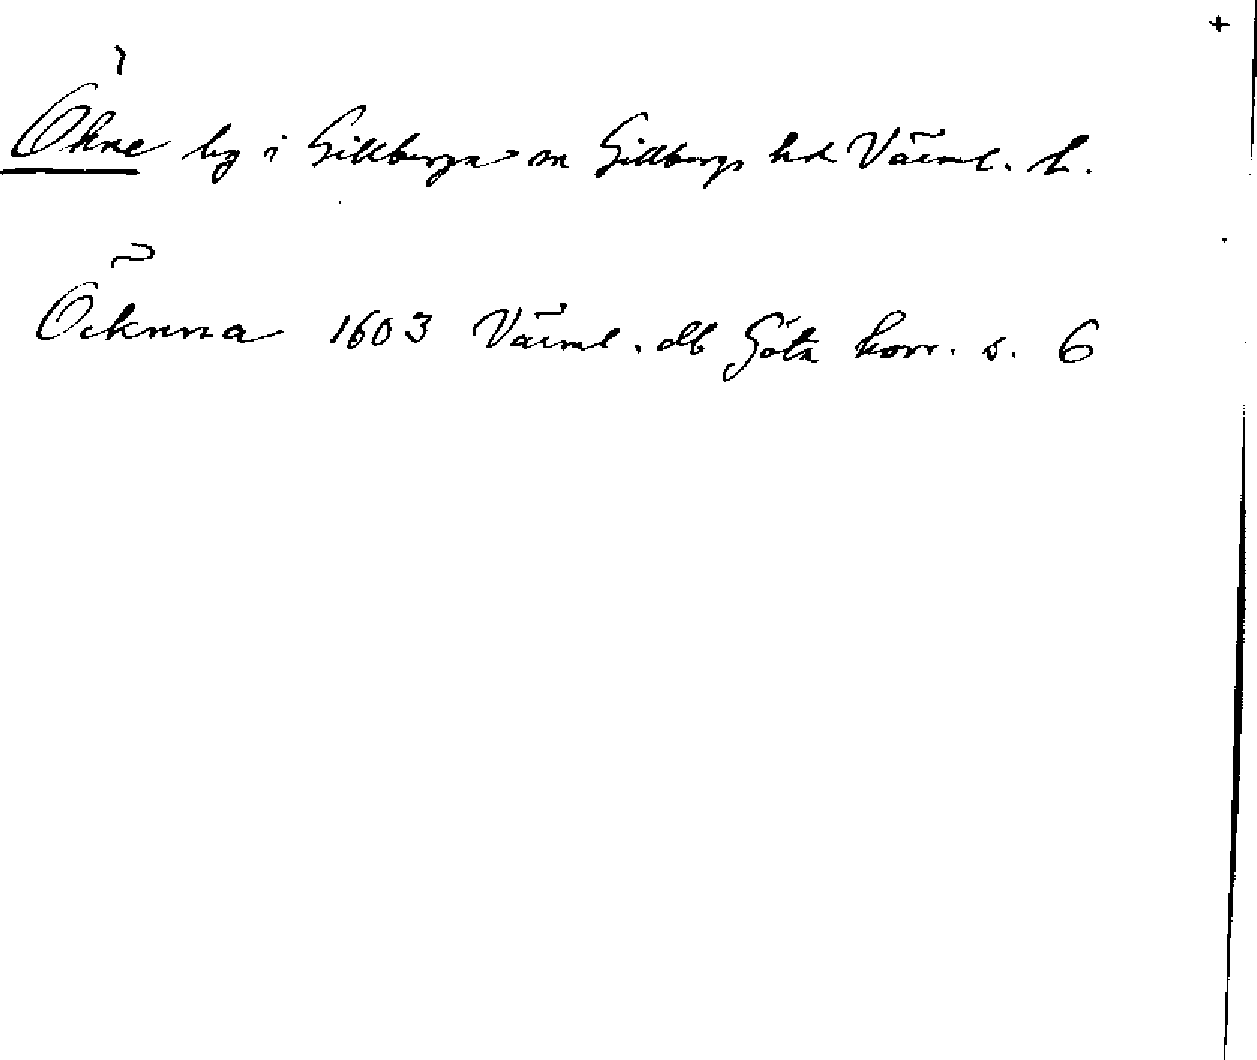 +
Ökne by i Gillberga sn Gillbergs hd Värml. l.
Öcknna 1603 Värml. db Göta hovr. s. 6